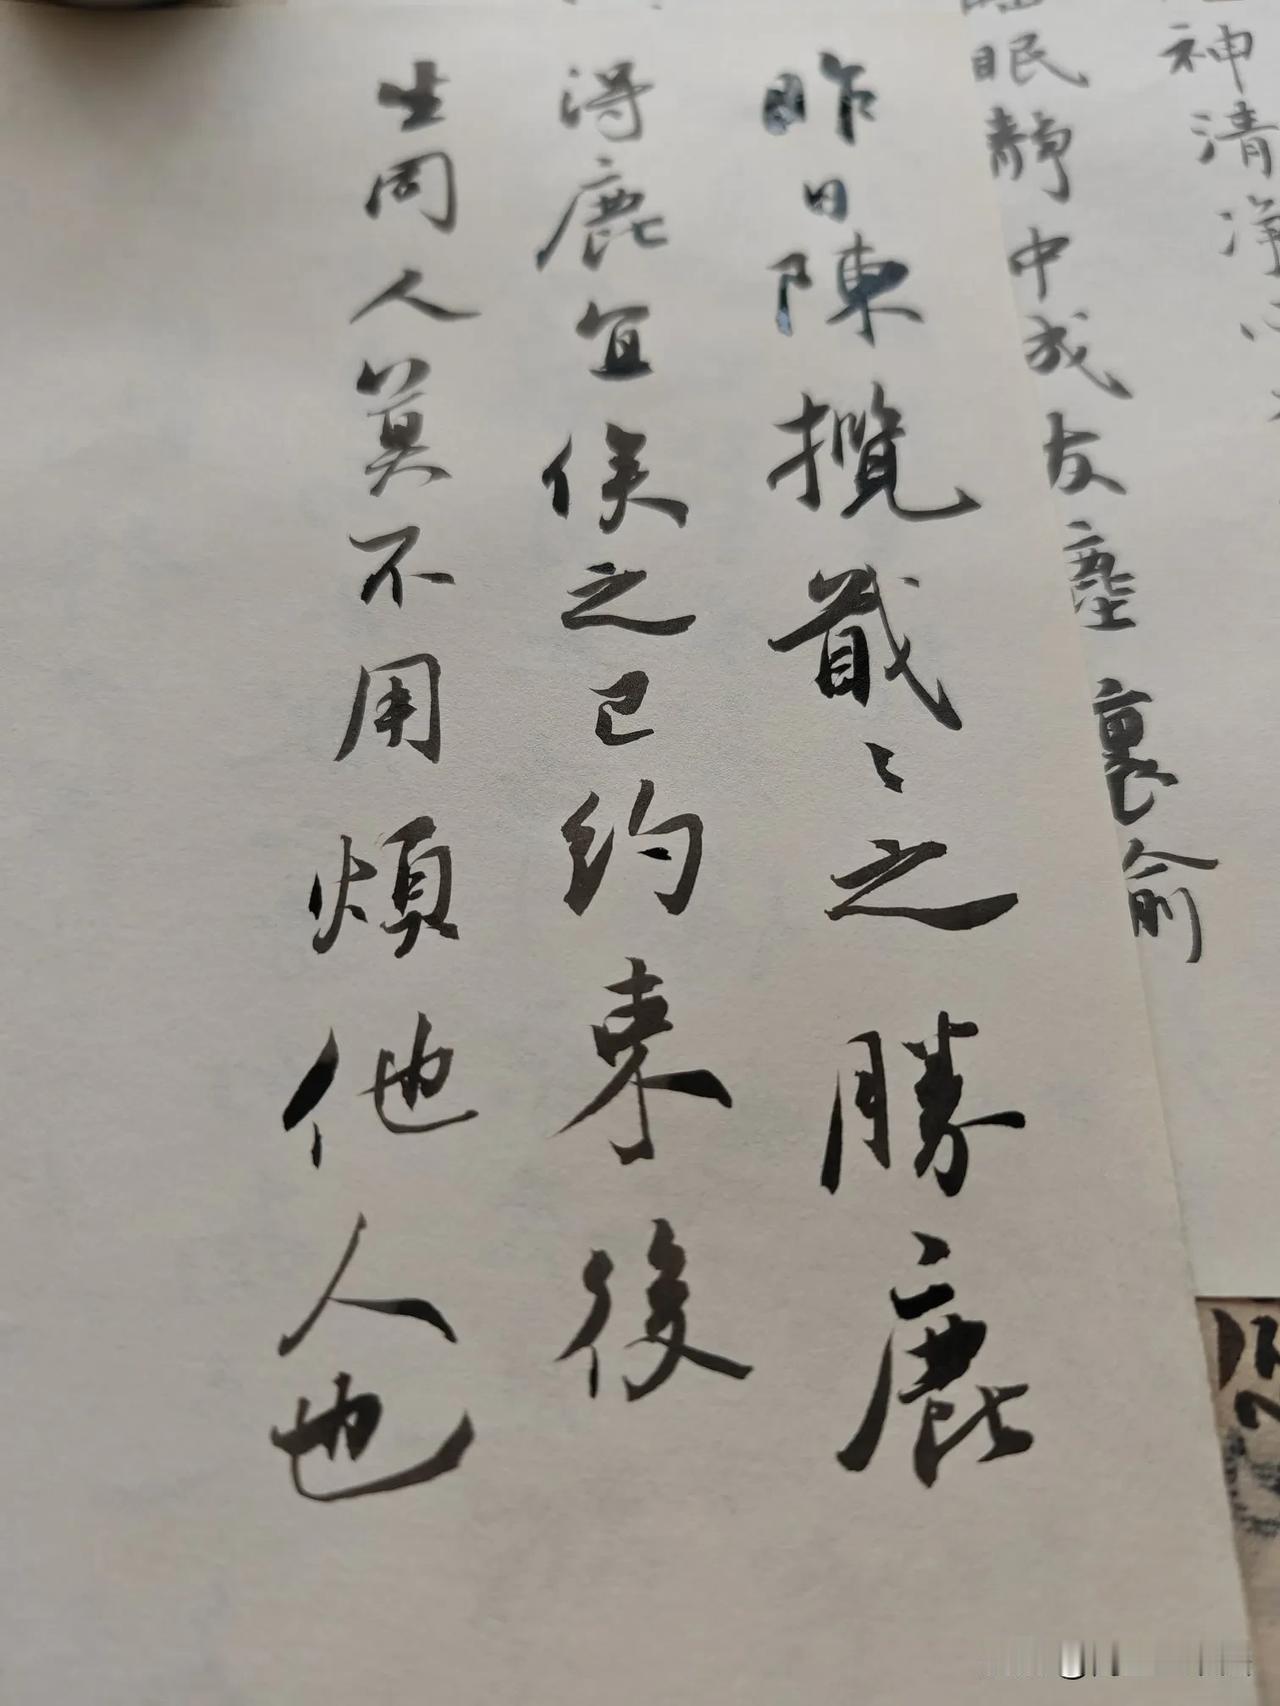 神清淨心
眠静中成友塵裏俞
昨日陳攬戢〻之勝鹿
得鹿宜俟之已約束後
生同人莫不用煩他人也